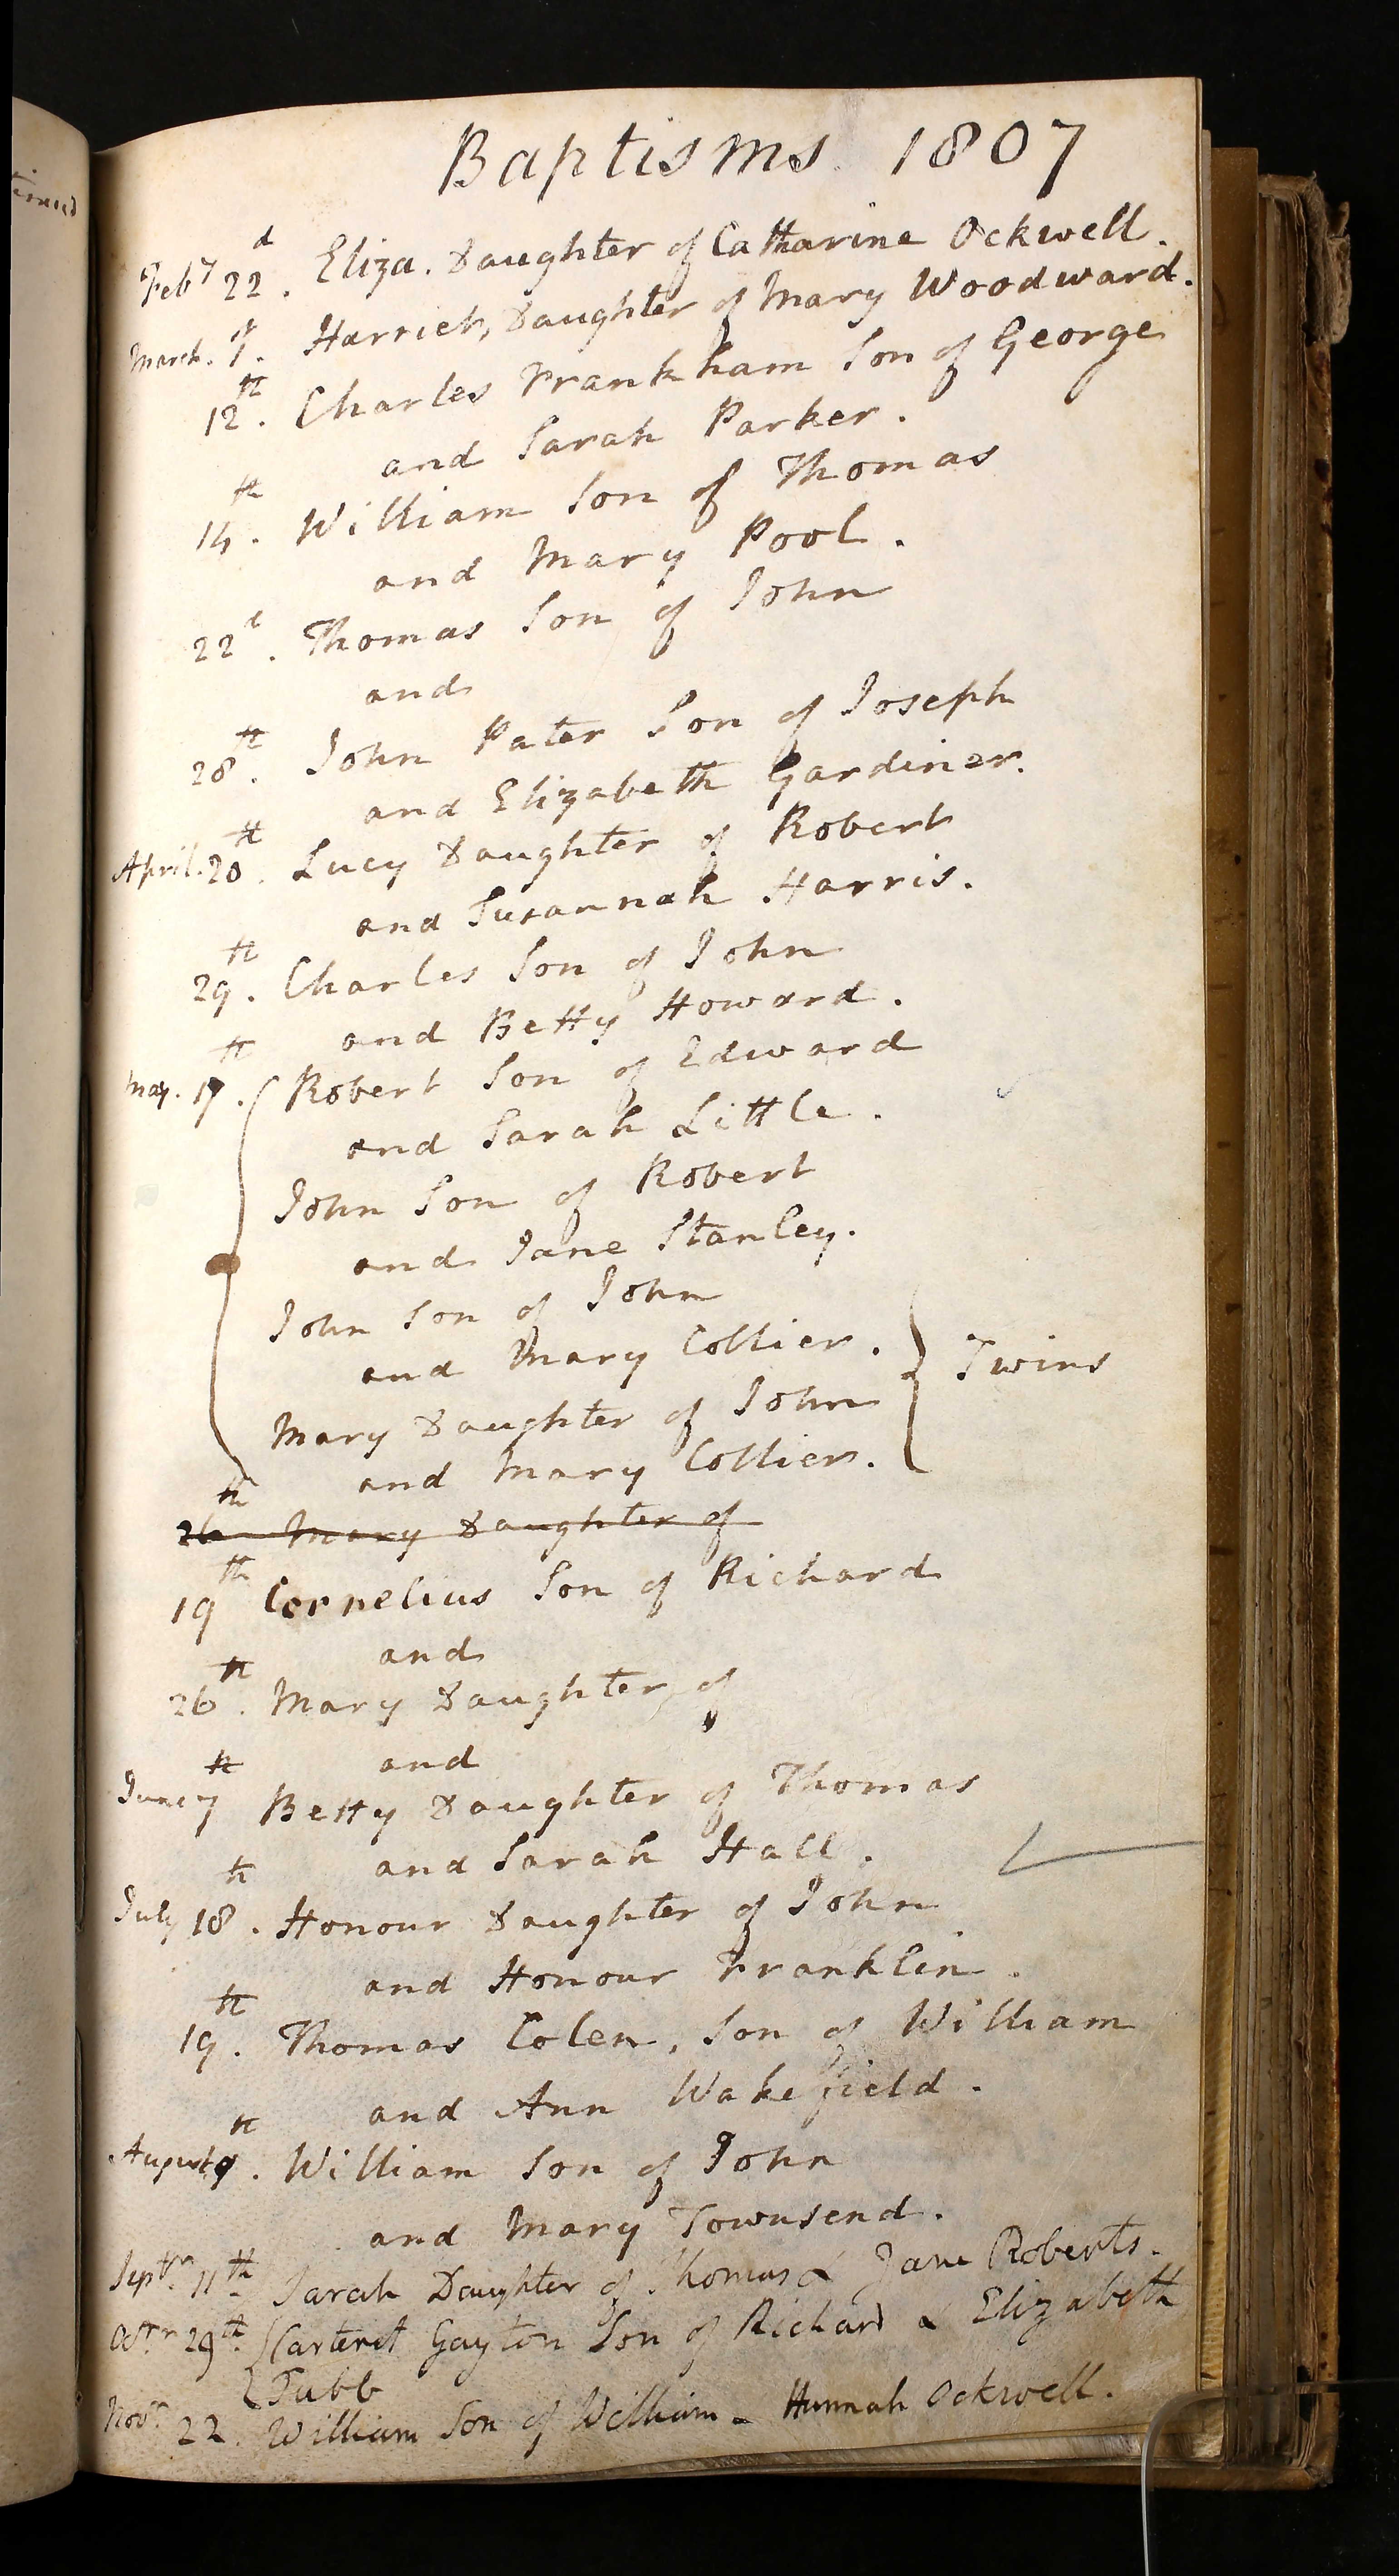 Baptisms. 1807
Feby 22d. Eliza. Daughter of Catharine Ockwell.
March. 1st. Harriet, Daughter of Mary Woodward.
12th. Charles Frankham Son of George
and Sarah Parker.
14th. William Son of Thomas
and Mary Pool.
22d. Thomas Son of John
and
28th. John Pater Son of Joseph
and Elizabeth Gardiner.
April. 20th. Lucy Daughter of Robert
and Susannah Harris.
29th. Charles Son of John
and Betty Howard.
May. 17th. Robert Son of Edward
and Sarah Little.
John Son of Robert
and Jane Stanley.
John Son of John
and Mary Collier. Twins
Mary Daughter of John
and Mary Collier.
26th Mary Daughter of
19th Cornelius Son of Richard
and
26th. Mary Daughter of
and
June 7th Betty Daughter of Thomas
and Sarah Hall.
July 18th. Honour Daughter of John
and Honour Franklin.
19th. Thomas Colen, Son of William
and Ann Wakefield.
August 9th. William Son of John
and Mary Townsend.
Septr. 11th Sarah Daughter of Thomas & Jane Roberts.
Octr 29th. Carteret Gayton Son of Richard & Elizabeth
Tubb
Novr. 22. William Son of William & Hannah Ockwell.